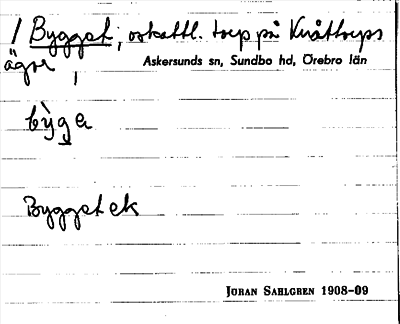 / Bygget, oskattl. torp på Knåttorps
ägor,
Askersunds sn, Sundbo hd, Örebro län
bỳgə
Bygget ek
JÖRAN SAHLGREN 1908-09